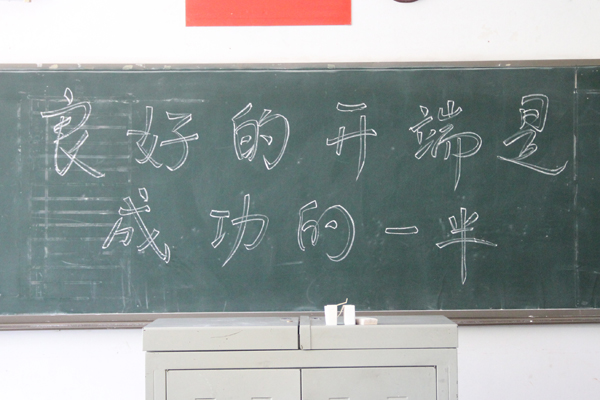 良好的开端是
成功的一半